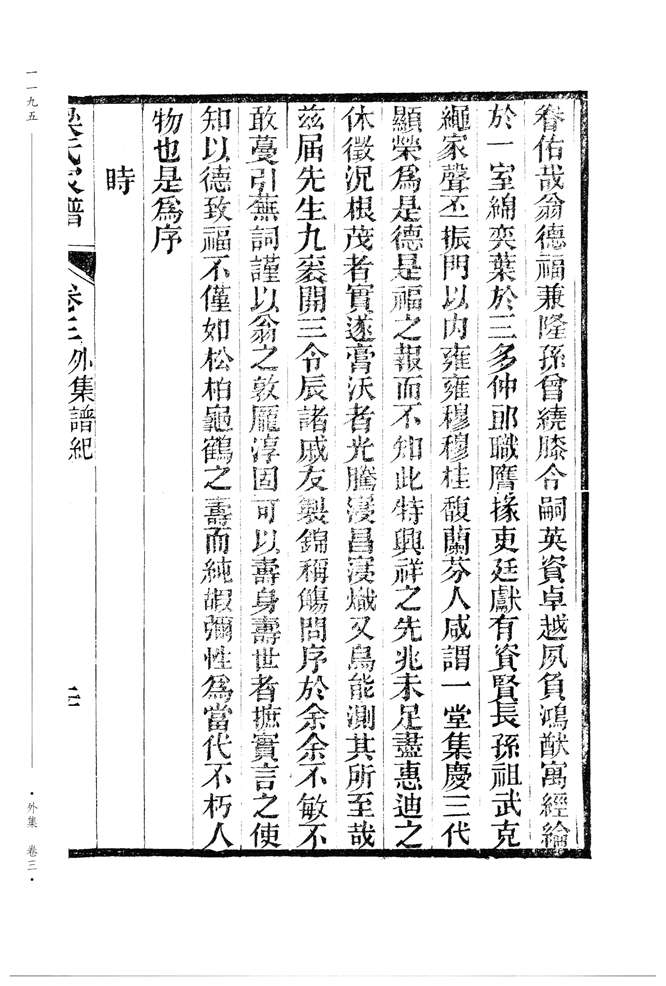 眷佑哉翁德福兼隆孫曾繞膝令嗣英資卓越夙負鴻猷寓經綸
於一室綿奕葉於三多仲郎職膺掾吏廷獻有資賢長孫祖武克
繩家聲丕振門以內雍雍穆穆桂馥蘭芬人咸謂一堂集慶三代
顯榮爲是德是福之報而不知此特興祥之先兆未足盡惠迪之
休徵況根茂者實遂膏沃者光騰寖昌寖熾又烏能測其所至哉
茲届先生九袠開三令辰諸戚友製錦稱觴問序於余余不敏不
敢蔓引蕪詞謹以翁之敦龎淳固可以壽身壽世者摭實言之使
知以德致福不僅如松柏龜鶴之壽而純嘏彌性爲當代不朽人
物也是爲序
時
梁氏家譜 卷三 外集譜紀
一一九五
外集 卷三